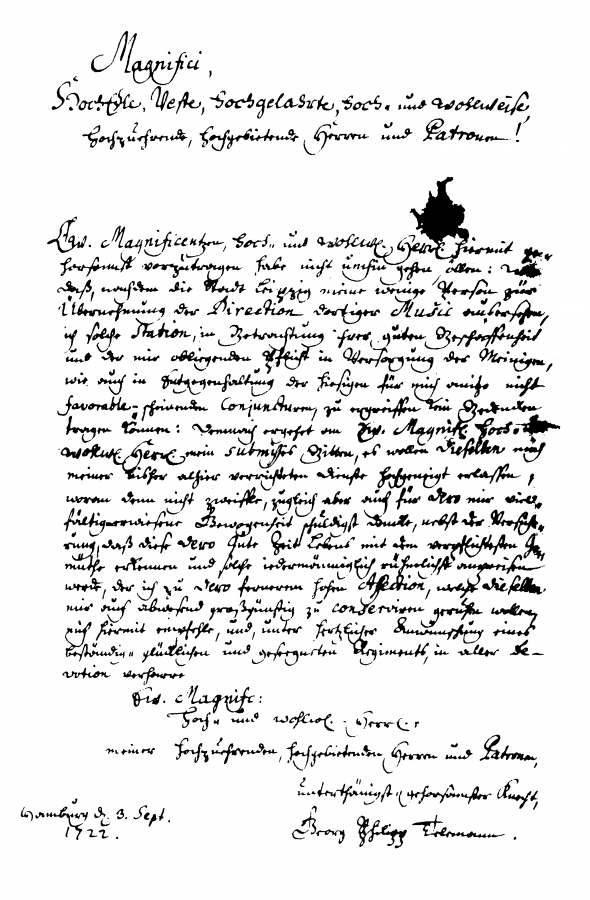 Magnifici,
HochEdle, Veste, Hochgelahrte, Hoch- und Wohlweise,
Hochzuehrende, Hochgebietende Herren und Patronen!
Ew. Magnificentzen, Hoch- und Wohlw. Herrl. hiermit ge-
horsamst vorzutragen habe nicht umhin gehen sollen:
daß, nachdem die Stadt Leipzig meine wenige Person zur
Übernehmung der Direction dortiger Music ausersehen,
ich solche Station, in Betrachtung ihrer guten Beschaffenheit
und der mir obliegenden Pflicht in Versorgung der Meinigen,
wie auch in Entgegenhaltung der hiesigen für mich anitzo nicht
favorable-scheinenden Conjuncturen, zu ergreiffen kein Bedencken
tragen können: Demnach ergehet an Ew. Magnif. Hoch-
Wohlw. Herrl. mein submißes Bitten, es wollen Dieselben mich
meiner bisher alhier verrichteten Dienste hochgeneigt erlassen,
woran denn nicht zweifle, zugleich aber auch für Dero mir viel-
fältig-erwiesene Bewogenheit schuldigst dancke, nebst der Versiche-
rung, daß diese Dero Güte Zeit Lebens mit dem verpflichtesten Ge-
müthe erkennen und solche iedermänniglich rühmlichst anpreisen
werde, der ich zu Dero fernerem hohen Affection, welche Dieselben
mir auch abwesend großgünstig zu conserviren geruhen wollen,
mich hiermit empfehle, und, unter hertzlicher Anwünschung eines
beständig- glücklichen und geseegneten Regiments, in aller De-
votion verharre
Ew. Magnif:
Hoch- und Wohlw. Herrl.
meiner Hochzuehrenden, Hochgebietenden Herren und Patronen,
unterthänigst-gehorsamster Knecht,
Hamburg d. 3. Sept.
1722.
Georg Philipp Telemann.